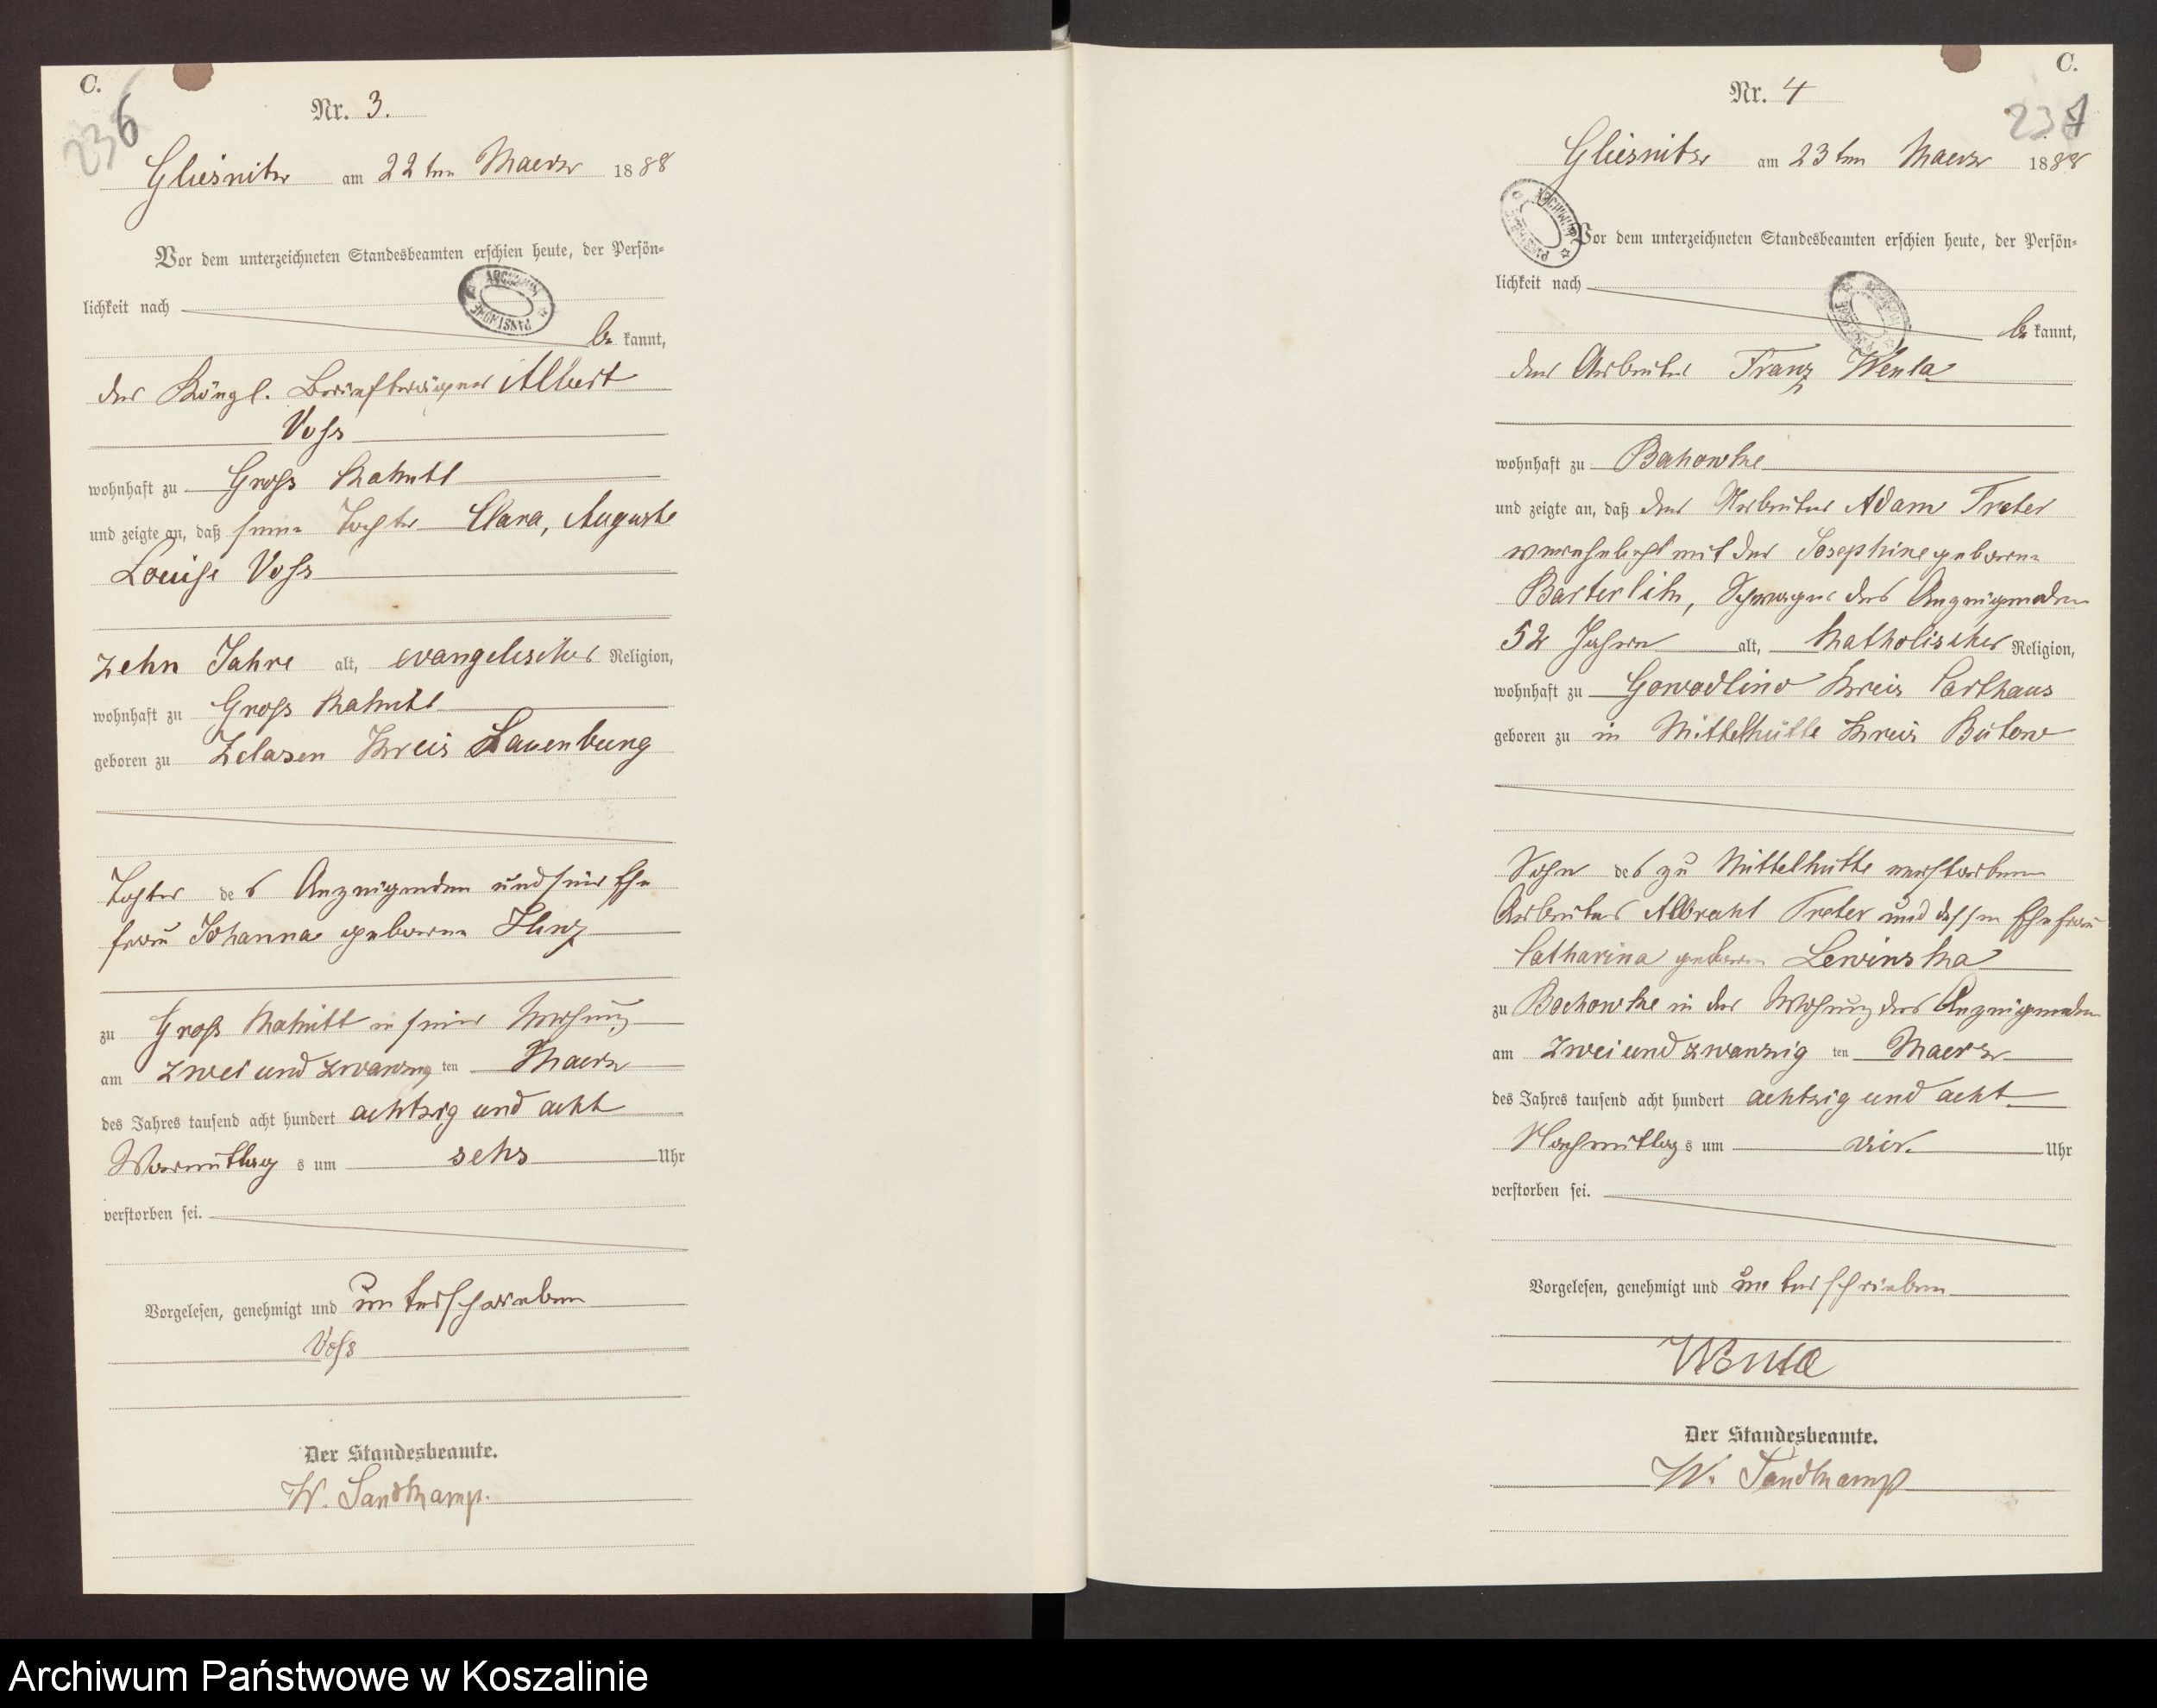 C.
236
Nr. 3.
Gliesnitz am 22ten Maerz 1888
Vor dem unterzeichneten Standesbeamten erschien heute, der Persön-
lichkeit nach
be kannt,
der Köngl. Briefträger Albert
Voss
wohnhaft zu Gross Rakitt
und zeigte an, daß seine Tochter Clara, Auguste
Louise Voss
zehn Jahre alt, evangelischer Religion,
wohnhaft zu Gross Rakitt
geboren zu Zelasen Kreis Lauenburg
Tochter des Anzeigenden und seiner Ehe
frau Johanna geborene
zu Gross Rakitt in seiner Wohnung
am zwei und zwanzig ten Maerz
des Jahres tausend acht hundert achtzig und acht
Vormittag s um sehs Uhr
verstorben sei.
Vorgelesen, genehmigt und unterschrieben
Voss
Der Standesbeamte.
W. Sandkamp.
C.
237
Nr. 4
Gliesnitz am 23ten Maerz 1888
Vor dem unterzeichneten Standesbeamten erschien heute, der Persön-
lichkeit nach
be kannt,
der Arbeiter Franz Wenta
wohnhaft zu Bachowke
und zeigte an, daß der Arbeiter Adam Treter
verehelicht mit der Josephine geborene
Schwager des Anzeigenden
52 Jahren alt, katholischer Religion,
wohnhaft zu Gowodlino Kreis Carthaus
geboren zu in Mittelhütte Kreis Bütow
Sohn des zu Mittelhütte verstorbenen
Arbeiters Albraht Treter und dessen Ehefrau
Catharina geboren Lewinska
zu Bochowke in der Wohnung des Anzeigenden
am zwei und zwanzig ten Maerz
des Jahres tausend acht hundert achtzig und acht
Nachmittag s um vier Uhr
verstorben sei.
Vorgelesen, genehmigt und unterschrieben
Wenta
Der Standesbeamte.
W. Sandkamp
Archiwum Państwowe w Koszalinie